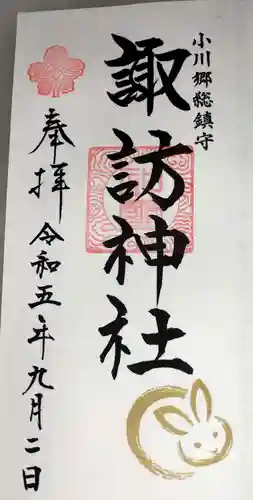 小川郷総鎮守
諏訪神社
奉拝
令和五年九月二日